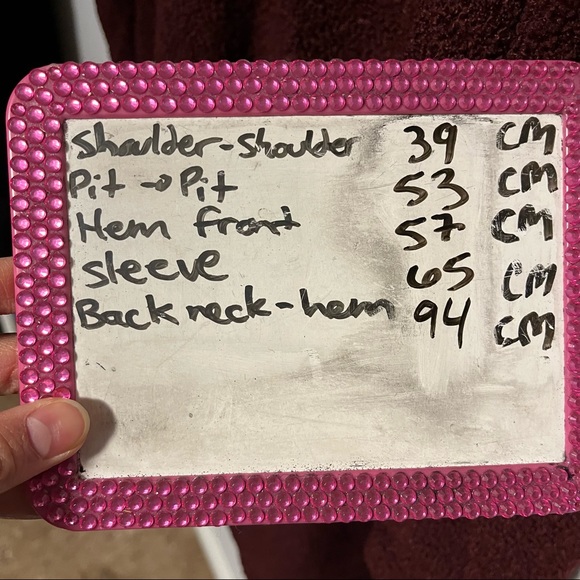 Shoulder-Shoulder 39 CM
Pit → Pit 53 CM
Hem front 57 CM
sleeve 65 CM
Back neck-hem 94 CM